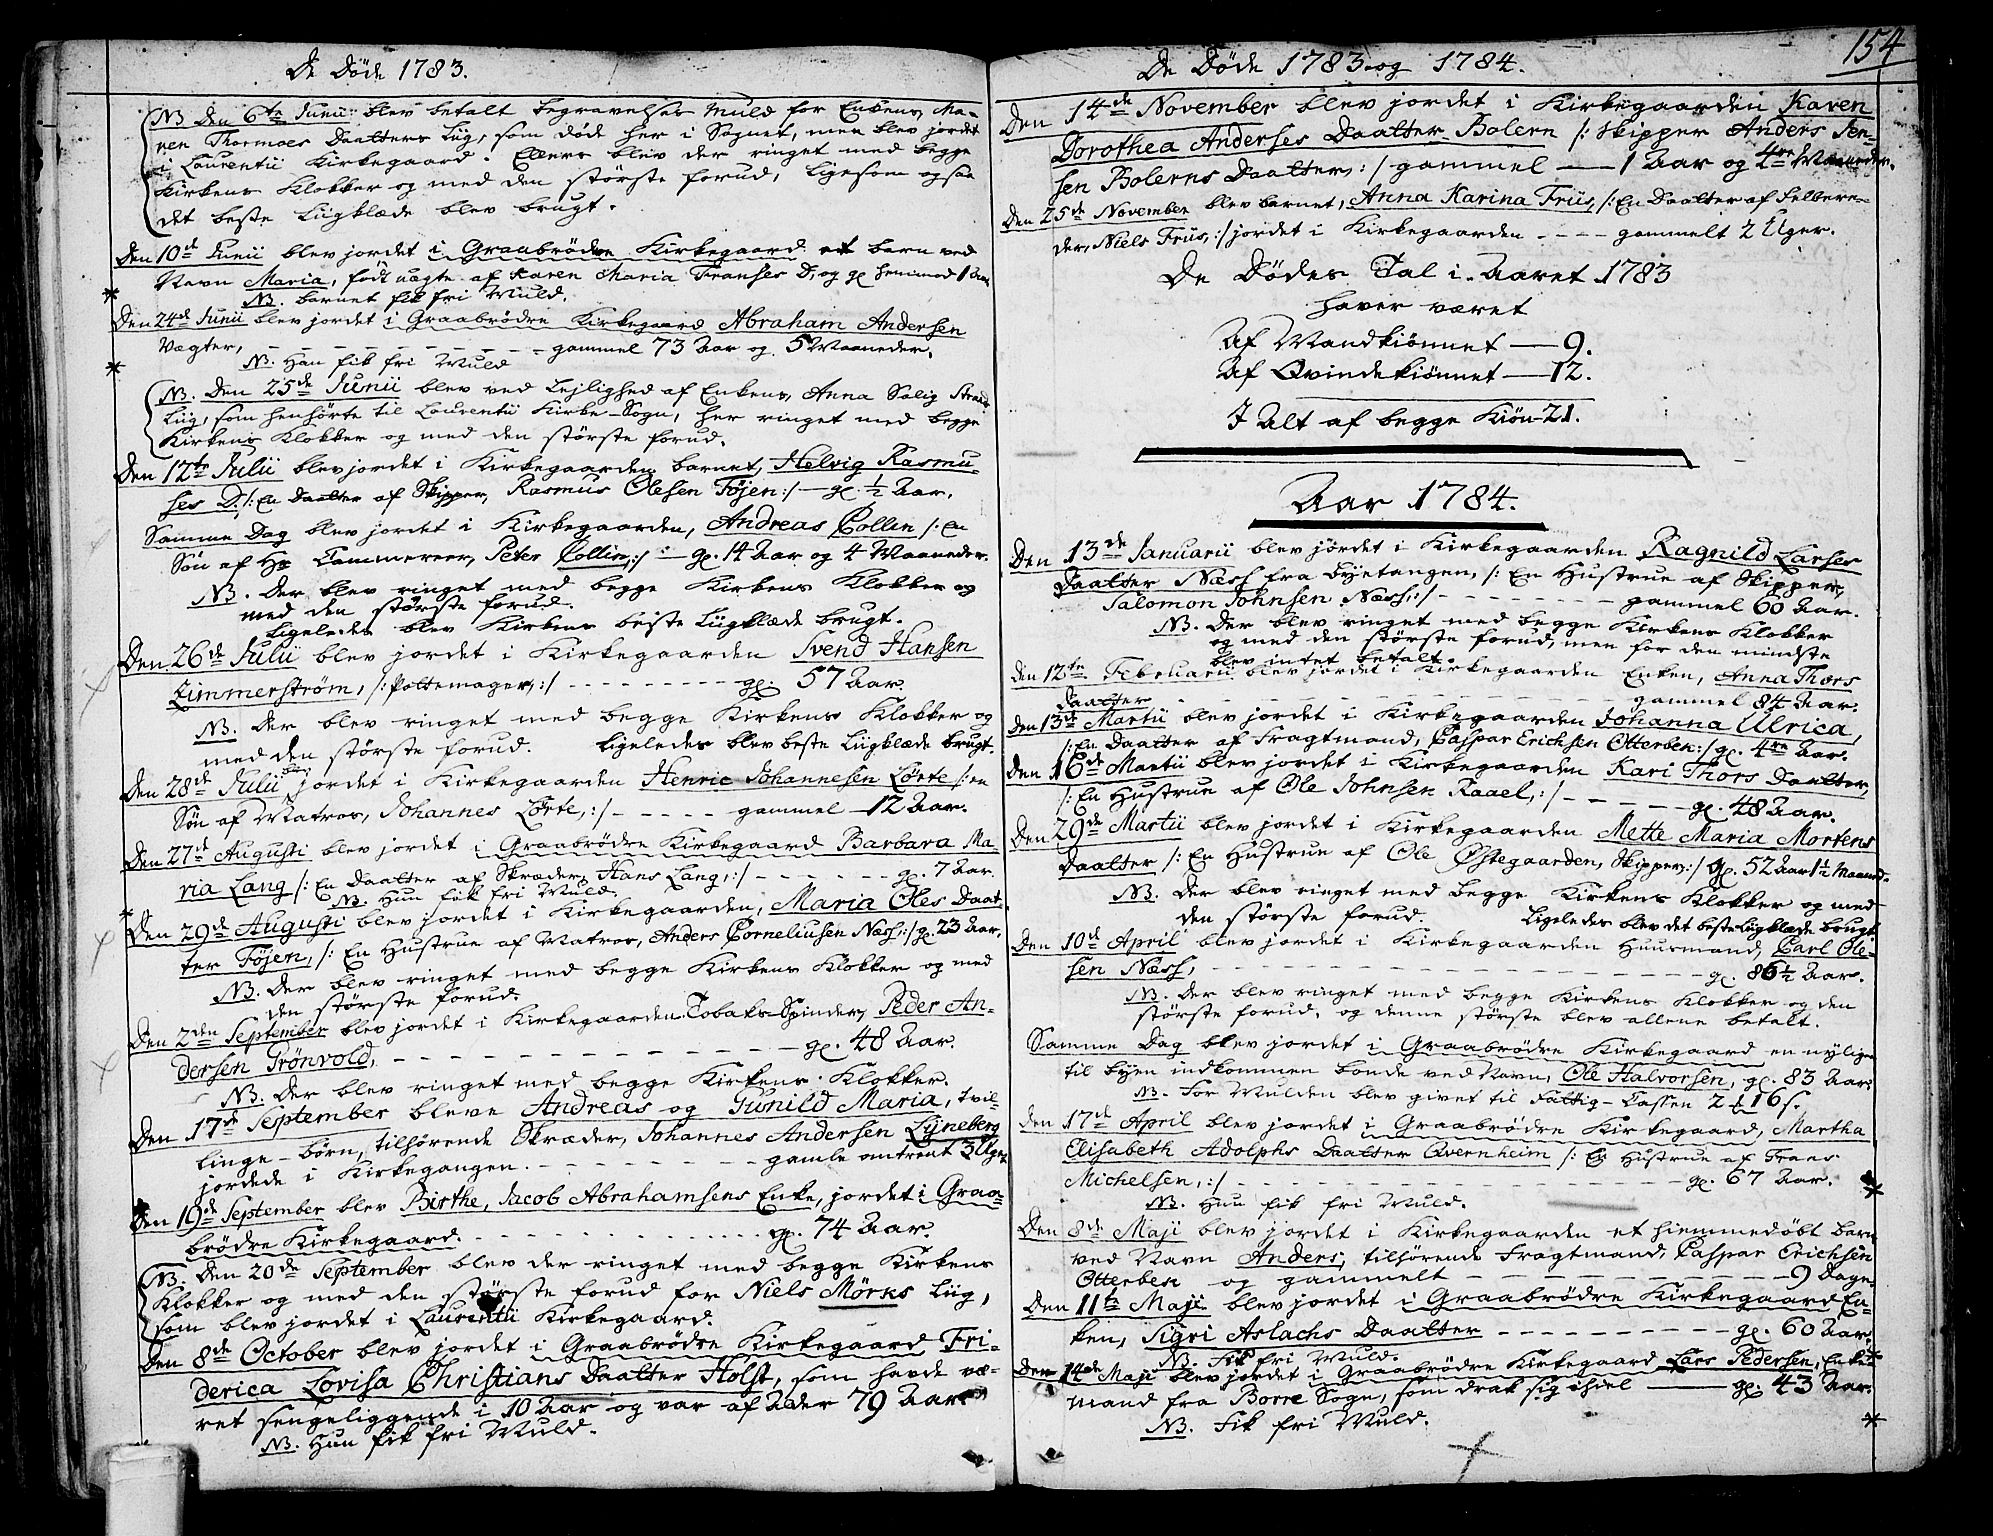 De Døde 1783.
NB. Den 6te Junii blev betalt begravelses Muld for Enken, Ma-
ren Thormoes Daatters Liig, som døde her i Sognet, men blev jordet
i Laurentii Kirkegaard. Ellers blev der ringet med begge
Kirkens Klokker og med den største forud, Ligesom ogsaa
det beste Liigklæde blev brugt.
Den 10de Junii blev jordet i Graabrødre Kirkegaard et barn ved
Navn Maria, født uægte af Karen Maria Franses D. og gl. henimod 1 Aar
NB. barnet fik fri Muld.
Den 24de Junii blev jordet i Graabrødre Kirkegaard Abraham Andersen
Vægter, - - - gammel 73 Aar og 5 Maaneder.
NB. Han fik fri Muld
NB. Den 25de Junii blev ved Lejlighed af Enkens, Anna Salig
Liig, som henhörte til Laurentii Kirke-Sogn, her ringet med begge
Kirkens Klokker og med den største forud.
Den 12te Julii blev jordet i Kirkegaarden barnet, Helvig Rasmu-
ses D. /: En Daatter af Skipper, Rasmus Olesen Föjen :/ — gl. ½ Aar.
Samme Dag blev jordet i Kirkegaarden, Andreas Collin /: En
Søn af Hr Cammereer, Peter Collin, :/ — gl. 14 Aar og 4 Maaneder.
NB. Der blev ringet med begge Kirkens Klokker og
med den største forud.
Ligeledes blev Kirkens beste Liigklæde brugt.
Den 26de Julii blev jordet i Kirkegaarden Svend Hansen
Zimmerström, /: Pottemager, :/ - - - gl. 57 Aar.
NB. Der blev ringet med begge Kirkens Klokker og
med den største forud. Ligeledes blev beste Liigklæde brugt.
Den 28de Julii blev jordet i Kirkegaarden Henric Johannesen Lörte /: en
Søn af Matros, Johannes Lörte, :/ - - - gammel — 12 Aar.
Den 27de Augusti blev jordet i Graabrødre Kirkegaard Barbara Ma-
ria Lang /: En Daatter af Skræder, Hans Lang, :/ - - - gl. 7 Aar.
NB. Hun fik fri Muld.
Den 29de Augusti blev jordet i Kirkegaarden, Maria Oles Daat-
ter Föjen, /: En Hustrue af Matros, Anders Corneliusen Næss :/ gl. 23 Aar.
NB. Der blev ringet med begge Kirkens Klokker og med
den største forud.
Den 2den September blev jordet i Kirkegaarden Tobaks-Spinder, Peder An-
dersen Grönvold, - - - gl. 48 Aar.
NB. Der blev ringet med begge Kirkens Klokker.
Den 17de September bleve Andreas og Gunild Maria, tvil-
linge-börn, tilhørende Skræder, Johannes Andersen Lyneberg
jordede i Kirkegangen. - - - gamle omtrent 3 Uger
Den 19de September blev Birthe, Jacob Abrahamsens Enke, jordet i Graa-
brødre Kirkegaard. - - - gl. 74 Aar.
NB. Den 20de September blev der ringet med begge Kirkens
Klokker og med den største forud for Niels Mörks Liig,
som blev jordet i Laurentii Kirkegaard.
Den 8de October blev jordet i Graabrødre Kirkegaard Fri-
derica Lovisa Christians Daatter Holst, som havde væ-
ret sengeliggende i 10 Aar og var af Alder 79 Aar
NB. Hun fik fri Muld.
154
De Døde 1783 og 1784.
Den 14de November blev jordet i Kirkegaarden Karen
Dorothea Anderses Daatter Bolern /: Skipper Anders Jen-
sen Bolerns Daatter, :/ gammel — 1 Aar og 4re Maaneder.
Den 25de November blev barnet, Anna Karina Friis, /: En Daatter af Selbere-
der, Niels Friis, :/ jordet i Kirkegaarden - - - gammelt 2 Uger.
De Dødes Tal i Aaret 1783
haver været
Af Mandkiönnet — 9.
Af Qvindekiönnet — 12.
I Alt af begge Kiön 21.
Aar 1784.
Den 13de Januarii blev jordet i Kirkegaarden Ragnild Larses
Daatter Næss fra Byetangen, /: En Hustrue af Skipper,
Salomon Johnsen Næss, :/ - - - gammel 60 Aar.
NB. Der blev ringet med begge Kirkens Klokker
og med den største forud, men for den mindste
blev intet betalt.
Den 12te Februarii blev jordet i Kirkegaarden Enken, Anna Thors
Daatter - - - gammel 84 Aar.
Den 13de Martii blev jordet i Kirkegaarden Johanna Ulrica,
/: En Daatter af Fragtmand, Caspar Erichsen Otterbek :/ gl. 4re Aar.
Den 16de Martii blev jordet i Kirkegaarden Kari Thors Daatter,
/: En Hustrue af Ole Johnsen Raael, :/ - - - gl. 48 Aar.
Den 29de Martii blev jordet i Kirkegaarden Mette Maria Mortens
Daatter /: En Hustrue af Ole Østegaarden, Skipper, :/ gl. 52 Aar 1½ Maaned.
NB. Der blev ringet med begge Kirkens Klokker og med
den største forud. Ligeledes blev det beste Liigklæde brugt
Den 10de April blev jordet i Kirkegaarden Huusmand, Carl Ole-
sen Næss, - - - gl. 86½ Aar.
NB. Der blev ringet med begge Kirkens Klokker og den
største forud, og denne største blev allene betalt.
Samme Dag blev jordet i Graabrødre Kirkegaard en nylig
til byen indkommen bonde ved Navn, Ole Halvorsen, gl. 83 Aar.
NB. For Mulden blev givet til Fattig-Cassen 2 ƚ 16 s.
Den 17de April blev jordet i Graabrødre Kirkegaard, Martha
Elisabeth Adolphs Daatter Qvernheim /: En Hustrue af Frans
Michelsen, :/ - - - gl. 67 Aar.
NB. Hun fik fri Muld.
Den 8de Maji blev jordet i Kirkegaarden et hiemmedöbt barn
ved Navn Anders, tilhørende Fragtmand, Caspar Erichsen
Otterbek og gammelt - - - 9 Dage
Den 11te Maji blev jordet i Graabrødre Kirkegaard En-
ken, Sigri Aslachs Daatter - - - gl. 60 Aar.
NB. Fik fri Muld.
Den 14de Maji blev jordet i Graabrødre Kirkegaard Lars Pedersen, Enke
mand fra Borre Sogn, som drak sig ihiel — gl. 43 Aar.
NB. Fik fri Muld.